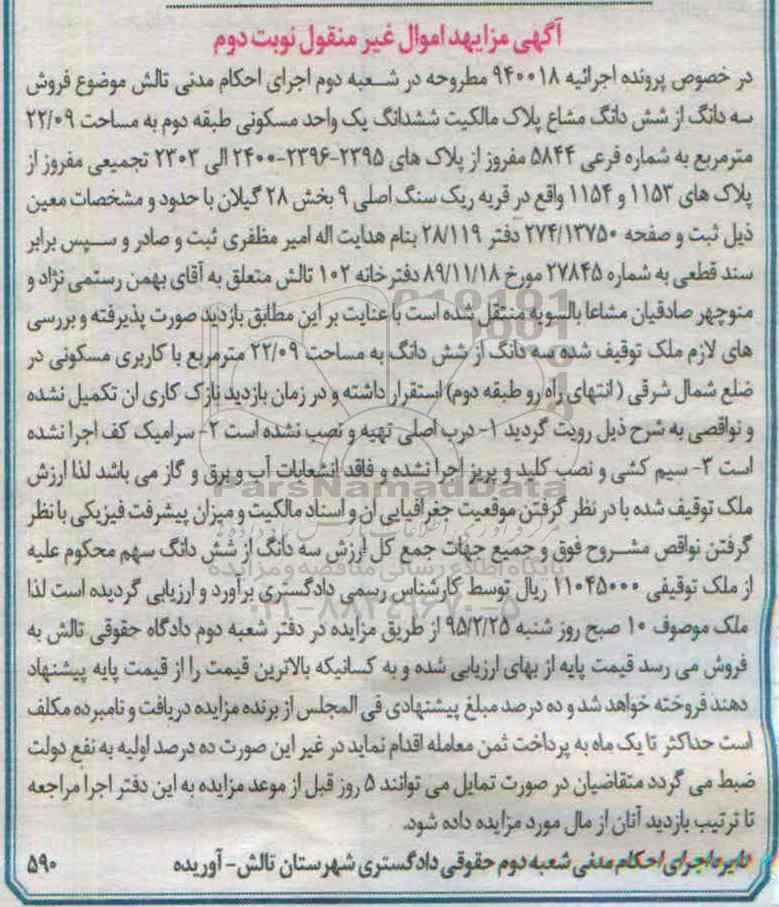 آگهی مزایهد اموال غیر منقول نوبت دوم
در خصوص پرونده اجرائیه ۹۴۰۰۱۸ مطروحه در شعبه دوم اجرای احکام مدنی تالش موضوع فروش
سه دانگ از شش دانگ مشاع پلاک مالکیت ششدانگ یک واحد مسکونی طبقه دوم به مساحت ۲۲/۰۹
مترمربع به شماره فرعی ۵۸۴۴ مفروز از پلاک های ۲۳۹۵-۲۳۹۶-۲۴۰۰ الی ۲۳۰۳ تجمیعی مفروز از
پلاک های ۱۱۵۳ و ۱۱۵۴ واقع در قریه ریک سنگ اصلی ۹ بخش ۲۸ گیلان با حدود و مشخصات معین
ذیل ثبت و صفحه ۲۷۴/۱۳۷۵۰ دفتر ۲۸/۱۱۹ بنام هدایت اله امیر مظفری ثبت و صادر و سپس برابر
سند قطعی به شماره ۲۷۸۴۵ مورخ ۸۹/۱۱/۱۸ دفترخانه ۱۰۲ تالش متعلق به آقای بهمن رستمی نژاد و
منوچهر صادقیان مشاعا بالسویه منتقل شده است با عنایت بر این مطابق بازدید صورت پذیرفته و بررسی
های لازم ملک توقیف شده سه دانگ از شش دانگ به مساحت ۲۲/۰۹ مترمربع با کاربری مسکونی در
ضلع شمال شرقی (انتهای راه رو طبقه دوم) استقرار داشته و در زمان بازدید نازک کاری ان تکمیل نشده
و نواقصی به شرح ذیل رویت گردید ۱- درب اصلی تهیه و نصب نشده است ۲- سرامیک کف اجرا نشده
است ۳- سیم کشی و نصب کلید و پریز اجرا نشده و فاقد انشعابات آب و برق و گاز می باشد لذا ارزش
ملک توقیف شده با در نظر گرفتن موقعیت جغرافیایی ان و اسناد مالکیت و میزان پیشرفت فیزیکی با نظر
گرفتن نواقص مشروح فوق و جمیع جهات جمع کل ارزش سه دانگ از شش دانگ سهم محکوم علیه
از ملک توقیفی ۱۱۰۴۵۰۰۰ ریال توسط کارشناس رسمی دادگستری برآورد و ارزیابی گردیده است لذا
ملک موصوف ۱۰ صبح روز شنبه ۹۵/۲/۲۵ از طریق مزایده در دفتر شعبه دوم دادگاه حقوقی تالش به
فروش می رسد قیمت پایه از بهای ارزیابی شده و به کسانیکه بالاترین قیمت را از قیمت پایه پیشنهاد
دهند فروخته خواهد شد و ده درصد مبلغ پیشنهادی فی المجلس از برنده مزایده دریافت و نامبرده مکلف
است حداکثر تا یک ماه به پرداخت ثمن معامله اقدام نماید در غیر این صورت ده درصد اولیه به نفع دولت
ضبط می گردد متقاضیان در صورت تمایل می توانند ۵ روز قبل از موعد مزایده به این دفتر اجرا مراجعه
تا ترتیب بازدید آنان از مال مورد مزایده داده شود.
دایره اجرای احکام مدنی شعبه دوم حقوقی دادگستری شهرستان تالش- آوریده ۵۹۰
ParsNamadData
پایگاه اطلاع رسانی مناقصه و مزایده
۰۲۱-۸۸۳۴۹۶۷۰-۵